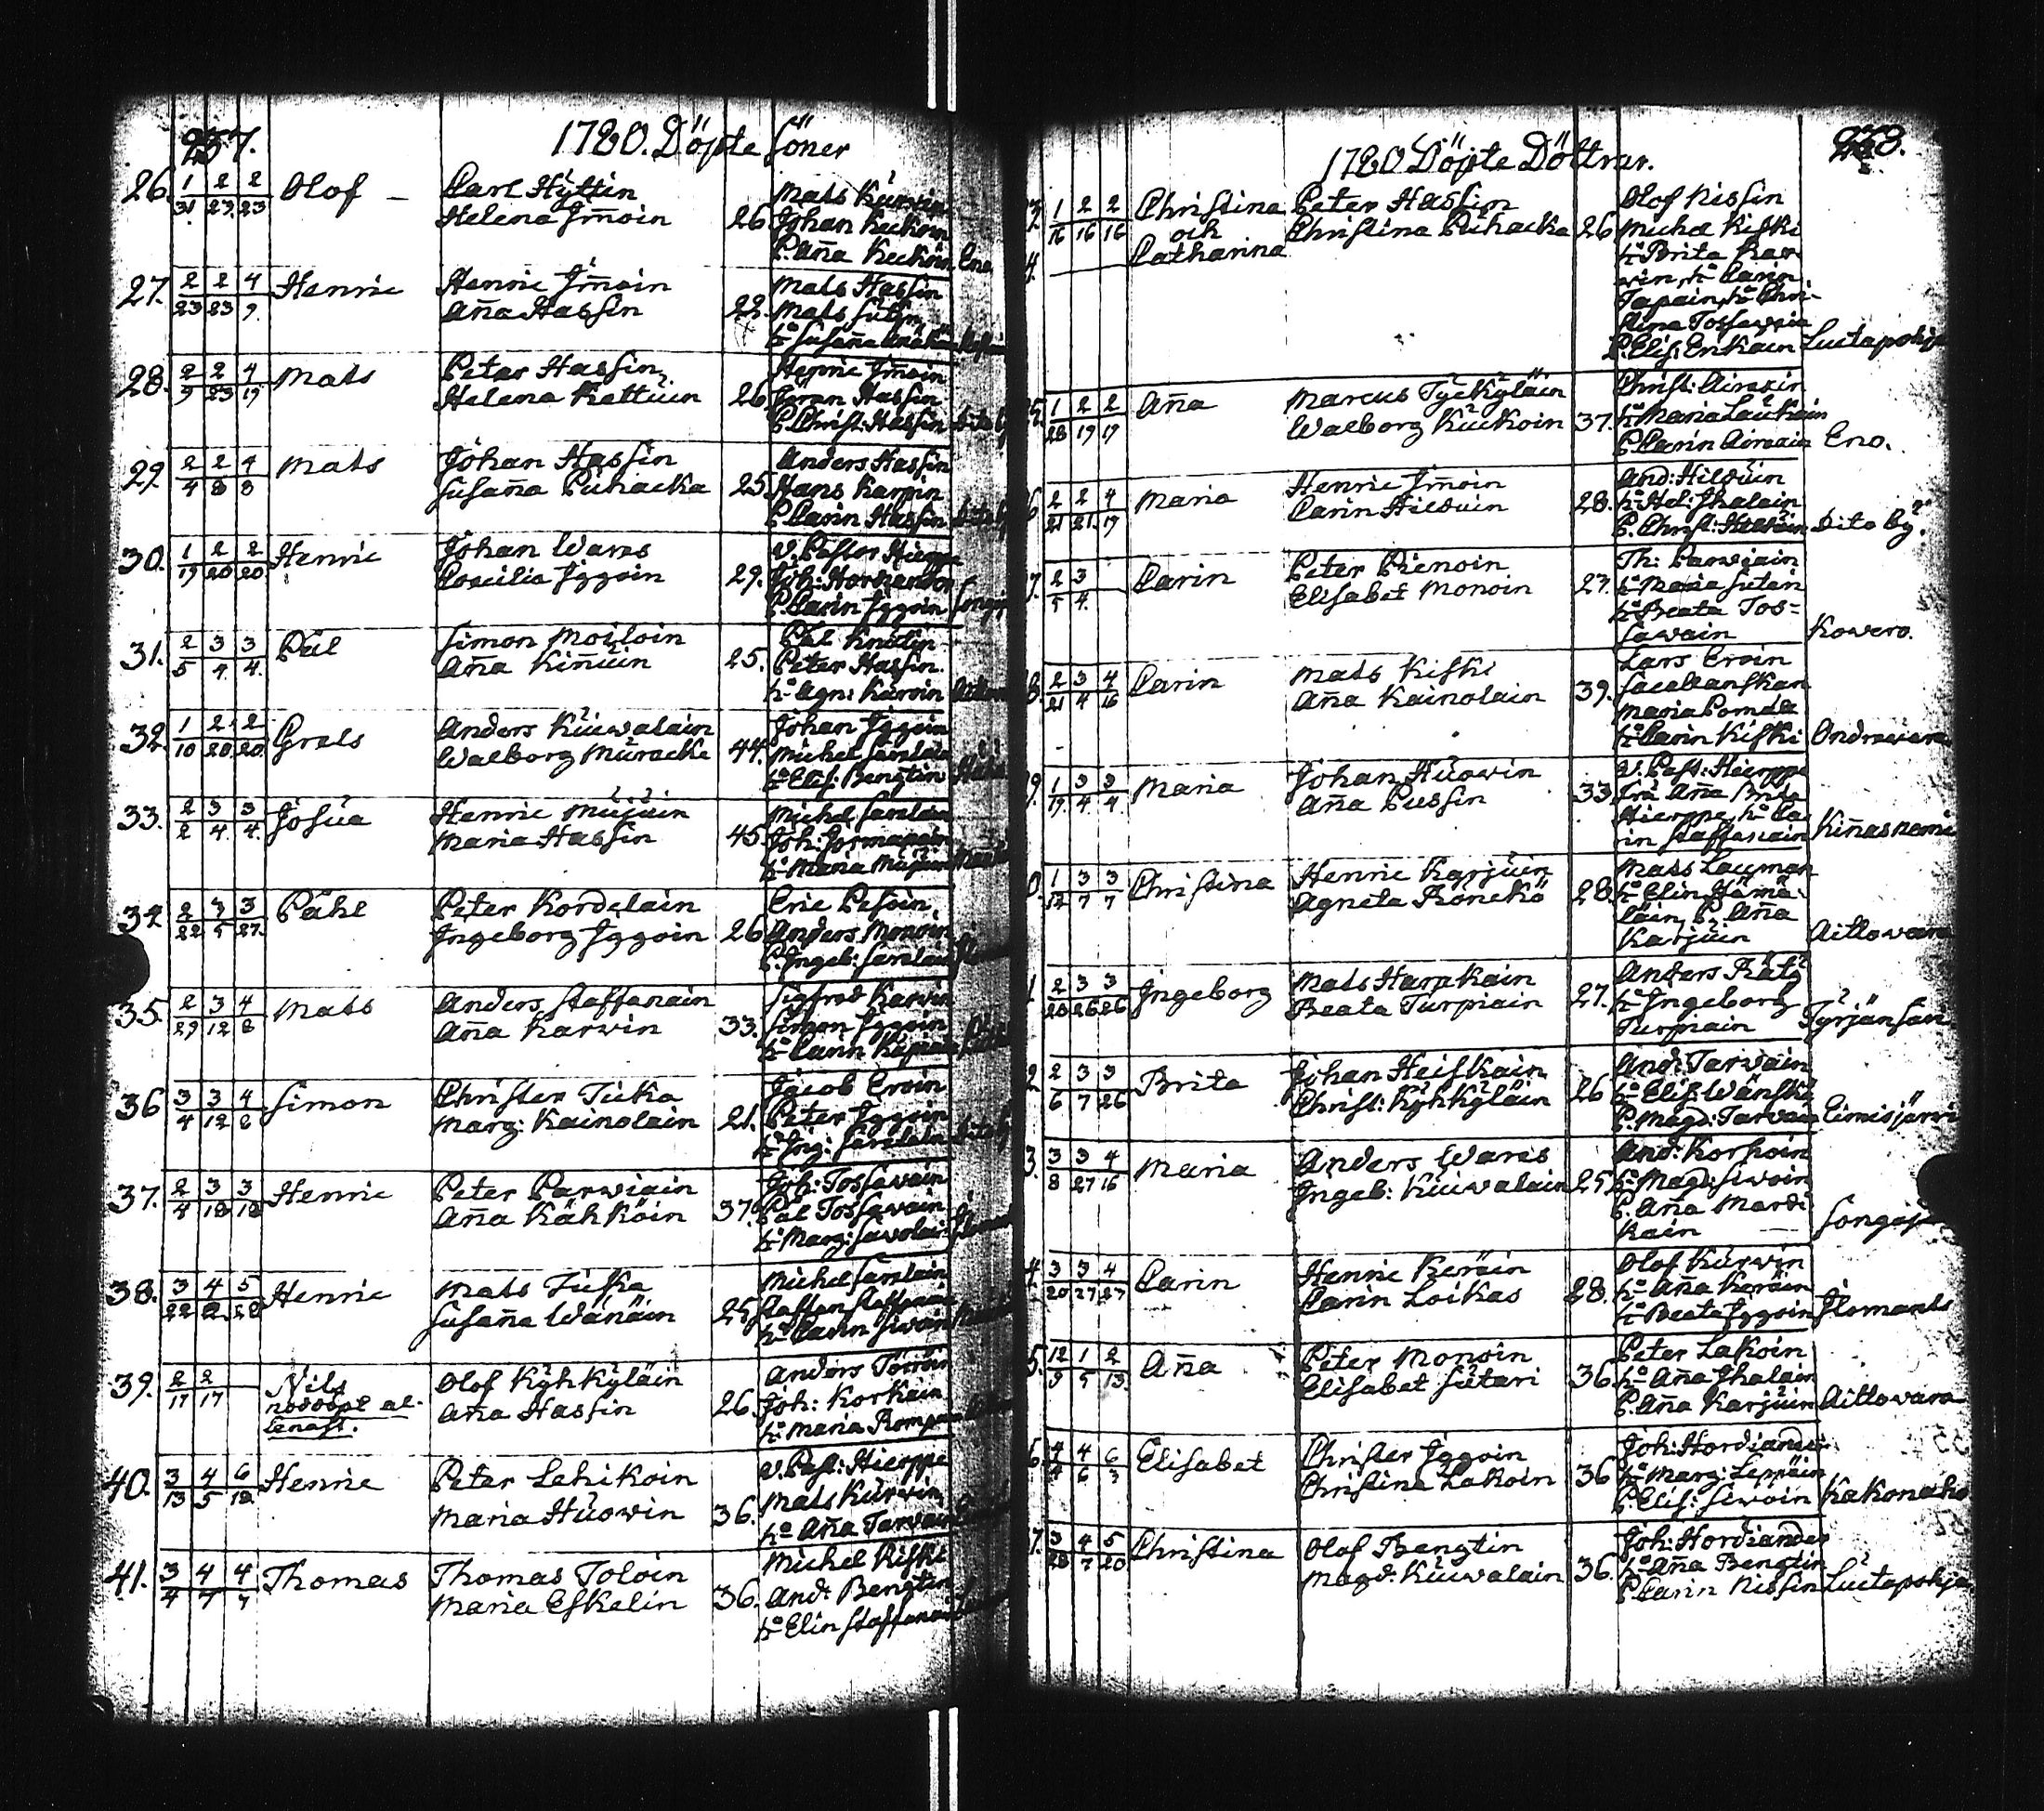 257.
1780. Döpte Söner
26 1/31 2/23 2/23 Olof – Carl Hÿttin
Helena Im̄oin 26 Mats Kurwin
Johan Kuckoin
P. Aña Kuckoin Eno
27. 2/23 2/23 4/9 Henric Henric Im̄oin
Aña Hassin 22. Mats Hassin
Mats
28. 2/9 2/23 4/19 Mats Peter Hassin
Helena Kettuin 26 Henric Im̄oin
Göran Hassin
P. Christ: Hassin dito by
29 2/4 2/8 4/8 Mats Johan Hassin
Susaña Puhacka 25 Anders Hassin
Hans Karpin
P. Carin Hassin dito by
30. 1/19 2/20 2/20 Henric Johan Wares
Coecilia Iggoin 29. V. Pastor Hierppe
Joh:
P. Carin Iggoin
31. 2/5 3/4. 3/4. Pål Simon Moiloin
Aña Kiñuin 25. Pål
Peter Hassin
hu Agn: Kurwin
32 1/10 2/20 2/20 Grels Anders Kuiwalain
Walborg Muracke 44. Johan Iggoin
Michel Saralain
hu Elis: Bengtin
33. 2/2 3/4. 3/4. Josua Henric Mujuin
Maria Hassin 45 Michel Saralain
Joh:
hu Maria Mujuin
34 2/22 3/5 3/27. Påhl Peter Kordelain
Ingeborg Iggoin 26 Eric Pesoin
Anders Monoin
P. Ingeb: Saralain
35. 2/29 3/12 4/8 Mats Anders Staffanain
Aña Karwin 33. Sigfred Karwin
Simon Iggoin
hu Carin
36 3/4 3/12 4/8 Simon Christer Tuka
Marg: Kainolain 21. Jacob Eroin
Peter Iggoin
hu Ing: Saralain dito by
37. 2/4 3/18 3/18 Henric Peter Parwiain
Aña Kähköin 37. Joh: Tossawain
Pål Tossawain
hu Marg: Sawolain
38. 3/22 4/2. 5/28 Henric Mats Tuska
Susaña Wänäin 25 Michel Saralain
Staffan Staffanain
hu Carin Siwoin
39. 2/17 2/17 Nils
nöddöpt al-
lenast. Olof Kÿhkÿläin
Aña Hassin 26. Anders Törröin
Joh: Korkain
hu Maria Rompain
40. 3/13 4/5 6/12 Henric Peter Lehikoin
Maria Huowin 36. V. Past: Hierppe
Mats Kurwin
hu Aña Tarwain
41. 3/4 4/7 4/7 Thomas Thomas Toloin
Maria Eskelin 36. Michel Kiski
And: Bengtin
hu Elin Staffanain
1780 Döpte Döttrar.
1/16 2/16 2/16 Christina
och
Catharina Peter Hassin
Christina Puhacka 26 Olof Nissin
Michel Kiski
hu Brita Kar-
win, hu Carin
Tapain, hu Chri-
stina Tossawain
P. Elis: Erikain Luetapohja
1/28 2/19 2/19 Aña Marcus Tyckyläin
Walborg Kuckoin 37. Christ: Airaxin
hu Maria Laukain
P. Carin Airaxin Eno.
2/21 2/21. 4/19 Maria Henric Im̄oin
Carin Hilduin 28. And: Hilduin
hu Hel: Ihalain
P. Christ: Hilduin dito by.
2/5 3/4. Carin Peter Pienoin
Elisabet Monoin 27. Th: Parwiain
hu Maria Sutari
hu Beata Tos-
sawain Kowero.
2/21 3/4 4/16 Carin Mats Kiski
Aña Kainolain 39. Lars Eroin
Maria
hu Carin Kiski
1/19. 3/4 3/4 Maria Johan Huowin
Aña Pussin 33 V. Past: Hierppe
Fru Aña Brita
Hierppe, hu Ca-
rin Staffanain Kiñasniemi
1/12 3/7 3/7 Christina Henric Karjuin
Agneta Röncko 28. Mats Lauman
hu Elin Hämä-
läin, P. Aña
Karjuin Aittowara
2/28 3/26 3/26 Ingeborg Mats Harpkain
Beata Turpiain 27. Anders Räty
hu Ingeborg
Turpiain
2/6 3/7 3/26 Brita Johan Heiskain
Christ: Kÿhkÿläin 26 And: Tarwain
hu Elis: Wänskä
P. Magd: Tarwain Eimisjärwi
3/8 3/27 4/16 Maria Anders Wares
Ingeb: Kuiwalain 25 And: Korhoin
hu Magd: Siwoin
P. Aña Marti-
kain
3/20 3/27 4/27 Carin Henric Keräin
Carin Loikas 28. Olof Kurwin
hu Aña Keräin
hu Beata Iggoin Ilomants
12/9 1/5 2/13. Aña Peter Monoin
Elisabet Sutari 36 Peter Lakoin
hu Aña Ihalain
P. Aña Karjuin Aittowara
4/4 4/6 6/3 Elisabet Christer Iggoin
Christina Lakoin 36 Joh:
hu Marg: Leppäin
P. Elis: Siwoin Kakonaho
3/28 4/7 5/20 Christina Olof Bengtin
Magd: Kuiwalain 36. Joh:
hu Aña Bengtin
P. Carin Nissin Luetapohja